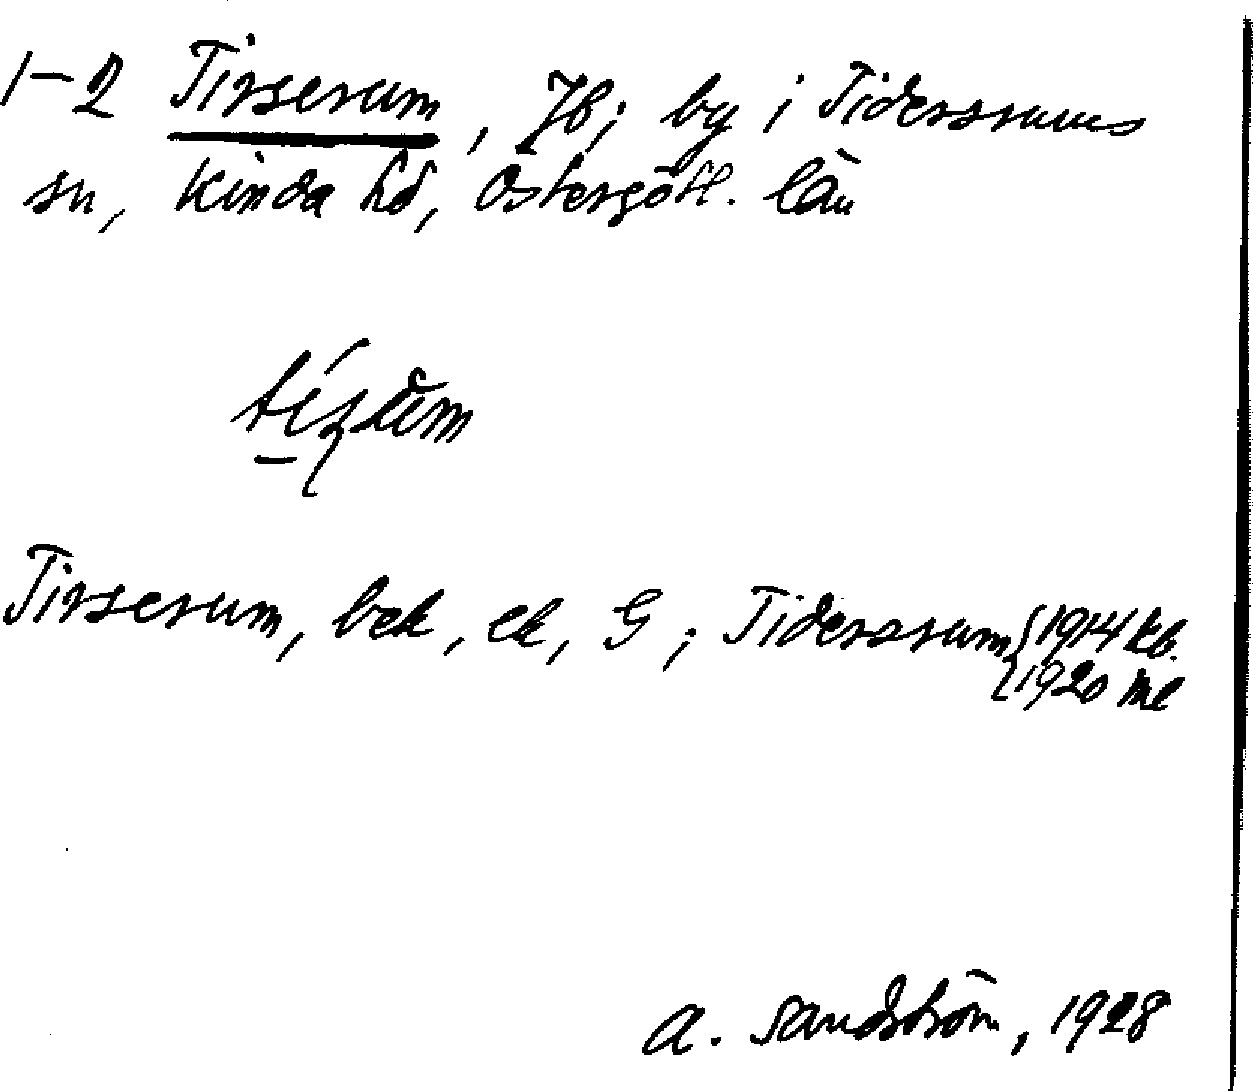 1-2 Tirserum, Jb; by i Tidersrums
sn, Kinda hd, Östergötl. län
Tirserum, bek, ek, G; Tidersrum {1914 kb.
{1920 me
A. Sandström, 1928